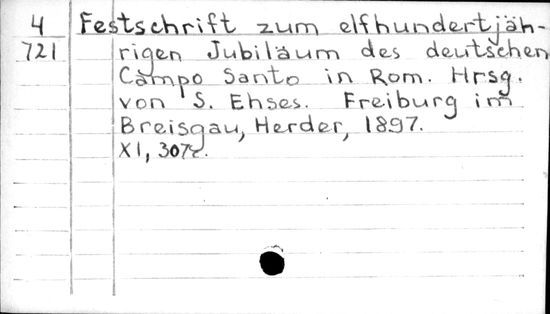 4 Festschrift zum elfhundertjäh-
721 rigen Jubiläum des deutschen
Campo Santo in Rom. Hrsg.
von S. Ehses. Freiburg im
Breisgau, Herder, 1897.
XI, 307